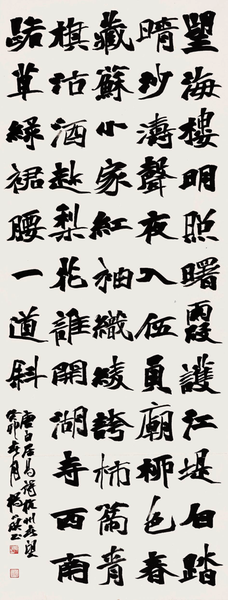 望海樓明照曙霞護江堤白踏
晴沙濤聲夜入伍員廟柳色春
藏蘇小家紅袖織綾誇柿蒂青
旗沽酒趁梨花誰開湖寺西南
路草綠裙腰一道斜
唐白居易詩杭州春望
癸卯春月